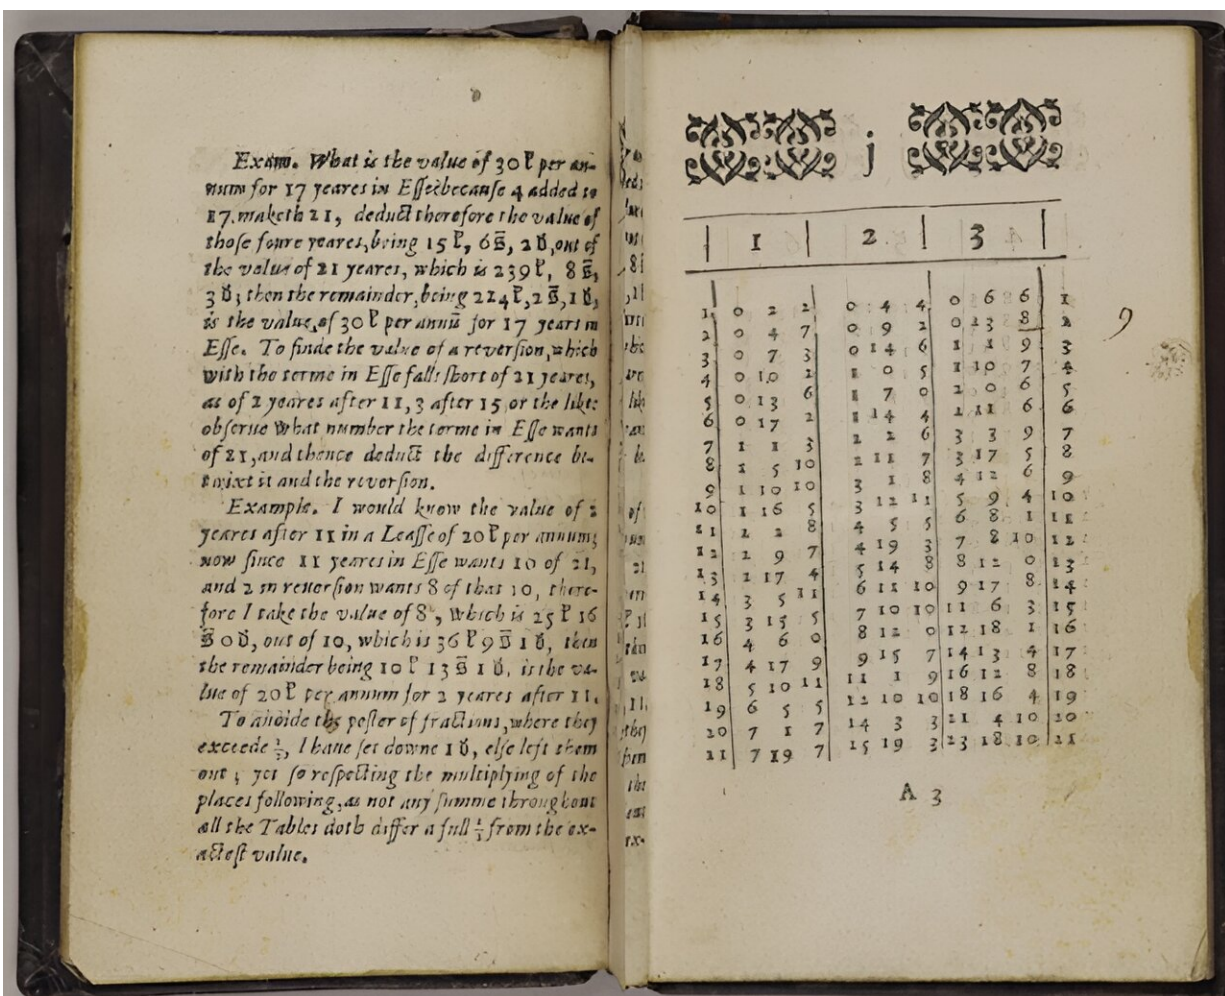 Exam. What is the value of 30 ł per an-
num for 17 yeares in Esse? because 4 added to
17. maketh 21, deduct therefore the value of
those foure yeares, being 15 ł, 6 s̄, 2 đ, out of
the value of 21 yeares, which is 239 ł, 8 s̄,
3 đ; then the remainder, being 224 ł, 2 s̄, 1 đ,
is the value of 30 ł per annū for 17 years in
Esse. To finde the value of a reversion, which
with the terme in Esse falls short of 21 yeares,
as of 2 yeares after 11, 3 after 15, or the like:
observe what number the terme in Esse wants
of 21, and thence deduct the difference be-
twixt it and the reversion.
Example. I would know the value of 2
yeares after 11 in a Leasse of 20 ł per annum;
now since 11 yeares in Esse wants 10 of 21,
and 2 in reversion wants 8 of that 10, there-
fore I take the value of 8, which is 25 ł 16
s̄ 0 đ, out of 10, which is 36 ł 9 s̄ 1 đ, then
the remainder being 10 ł 13 s̄ 1 đ, is the va-
lue of 20 ł per annum for 2 yeares after 11.
To auoide the pester of fractions, where they
exceede ½, I haue set downe 1 đ, else left them
out; yet so respecting the multiplying of the
places following, as not any summe throughout
all the Tables doth differ a full ½ from the ex-
actest value.
j
1 2 3
1 0 2 2 0 4 4 0 6 6 1
2 0 4 7 0 9 2 0 13 8 2
3 0 7 3 0 14 6 1 1 9 3
4 0 10 2 1 0 5 1 10 7 4
5 0 13 6 1 7 0 2 0 6 5
6 0 17 2 1 14 4 2 11 6 6
7 1 1 3 2 2 6 3 3 9 7
8 1 5 10 2 11 7 3 17 5 8
9 1 10 10 3 1 8 4 12 6 9
10 1 16 5 3 12 11 5 9 4 10
11 2 2 8 4 5 5 6 8 1 11
12 2 9 7 4 19 3 7 8 10 12
13 2 17 4 5 14 8 8 12 0 13
14 3 5 11 6 11 10 9 17 8 14
15 3 15 5 7 10 10 11 6 3 15
16 4 6 0 8 12 0 12 18 1 16
17 4 17 9 9 15 7 14 13 4 17
18 5 10 11 11 1 9 16 12 8 18
19 6 5 5 12 10 10 18 16 4 19
20 7 1 7 14 3 3 21 4 10 20
21 7 19 7 15 19 3 23 18 10 21
A 3
9